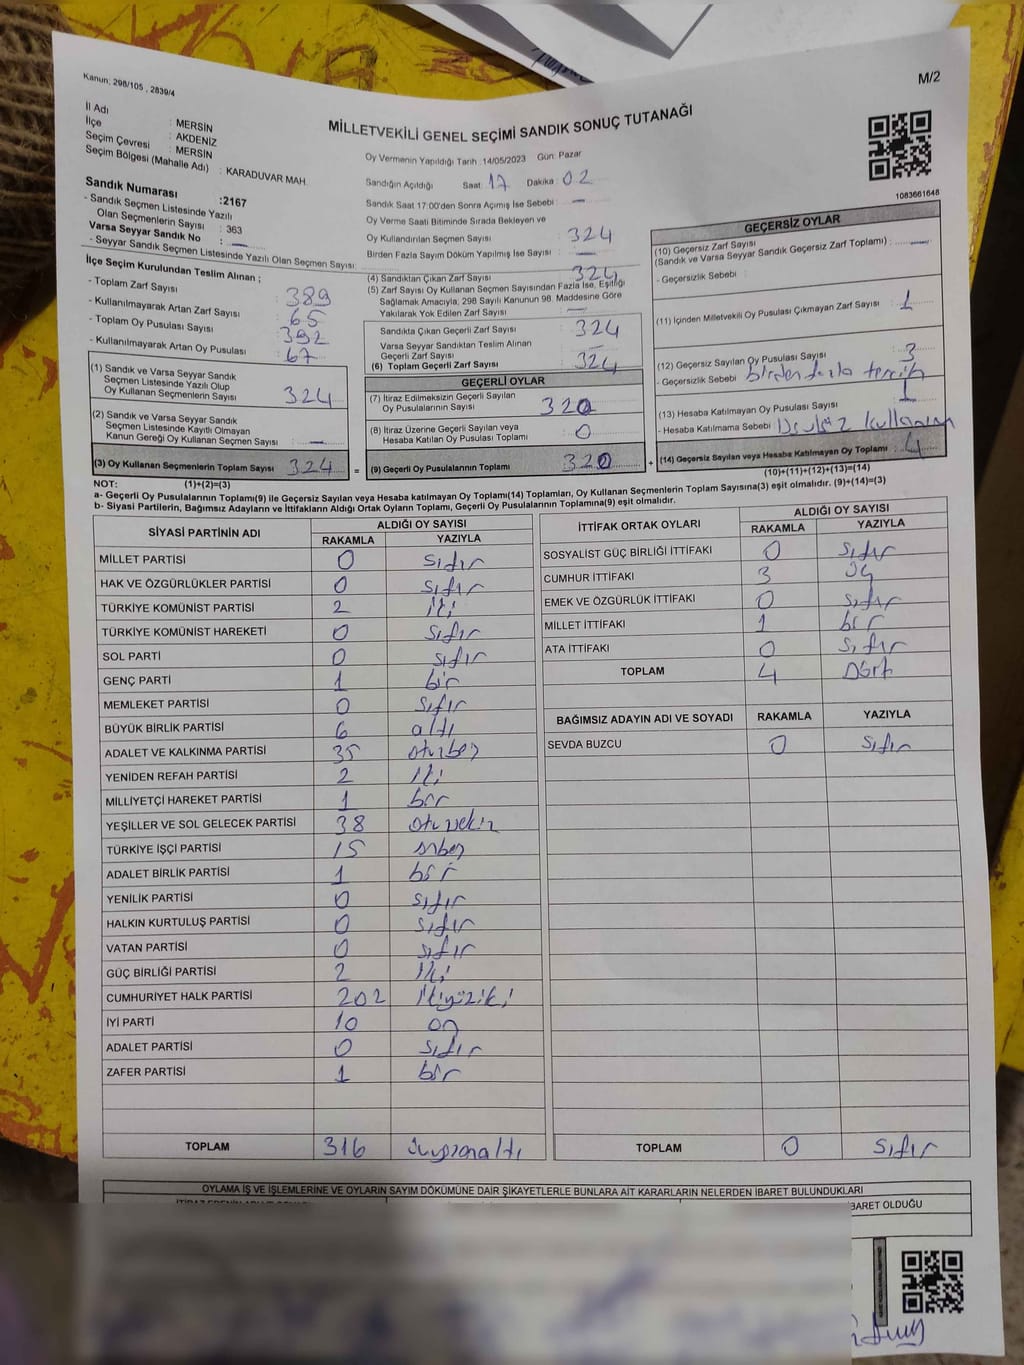 Kanun; 298/105 , 2839/4
M/2
MİLLETVEKİLİ GENEL SEÇİMİ SANDIK SONUÇ TUTANAĞI
İl Adı : MERSİN
İlçe : AKDENİZ
Seçim Çevresi : MERSİN
Seçim Bölgesi (Mahalle Adı) : KARADUVAR MAH.
Sandık Numarası :2167
- Sandık Seçmen Listesinde Yazılı
Olan Seçmenlerin Sayısı : 363
Varsa Seyyar Sandık No : —
- Seyyar Sandık Seçmen Listesinde Yazılı Olan Seçmen Sayısı:
İlçe Seçim Kurulundan Teslim Alınan ;
- Toplam Zarf Sayısı : 389
- Kullanılmayarak Artan Zarf Sayısı : 65
- Toplam Oy Pusulası Sayısı : 392
- Kullanılmayarak Artan Oy Pusulası : 67
(1) Sandık ve Varsa Seyyar Sandık
Seçmen Listesinde Yazılı Olup
Oy Kullanan Seçmenlerin Sayısı : 324
(2) Sandık ve Varsa Seyyar Sandık
Seçmen Listesinde Kayıtlı Olmayan
Kanun Gereği Oy Kullanan Seçmen Sayısı : —
(3) Oy Kullanan Seçmenlerin Toplam Sayısı : 324 =
(1)+(2)=(3)
Oy Vermenin Yapıldığı Tarih :14/05/2023 Gün: Pazar
Sandığın Açıldığı Saat : 17 Dakika : 02
Sandık Saat 17:00'den Sonra Açımış İse Sebebi : —
Oy Verme Saati Bitiminde Sırada Bekleyen ve
Oy Kullandırılan Seçmen Sayısı : 324
Birden Fazla Sayım Döküm Yapılmış İse Sayısı : —
(4) Sandıktan Çıkan Zarf Sayısı : 324
(5) Zarf Sayısı Oy Kullanan Seçmen Sayısından Fazla İse, Eşitliği
Sağlamak Amacıyla; 298 Sayılı Kanunun 98. Maddesine Göre
Yakılarak Yok Edilen Zarf Sayısı : —
Sandıkta Çıkan Geçerli Zarf Sayısı : 324
Varsa Seyyar Sandıktan Teslim Alınan
Geçerli Zarf Sayısı : —
(6) Toplam Geçerli Zarf Sayısı : 324
GEÇERLİ OYLAR
(7) İtiraz Edilmeksizin Geçerli Sayılan
Oy Pusulalarının Sayısı : 320
(8) İtiraz Üzerine Geçerli Sayılan veya
Hesaba Katılan Oy Pusulası Toplamı : 0
(9) Geçerli Oy Pusulalarının Toplamı : 320 +
1083661648
GEÇERSİZ OYLAR
(10) Geçersiz Zarf Sayısı
(Sandık ve Varsa Seyyar Sandık Geçersiz Zarf Toplamı) : —
- Geçersizlik Sebebi :
(11) İçinden Milletvekili Oy Pusulası Çıkmayan Zarf Sayısı : 1
(12) Geçersiz Sayılan Oy Pusulası Sayısı : 3
- Geçersizlik Sebebi : birden fazla tercih
(13) Hesaba Katılmayan Oy Pusulası Sayısı : 1
- Hesaba Katılmama Sebebi :
(14) Geçersiz Sayılan veya Hesaba Katılmayan Oy Toplamı : 4
(10)+(11)+(12)+(13)=(14)
NOT:
a- Geçerli Oy Pusulalarının Toplamı(9) ile Geçersiz Sayılan veya Hesaba katılmayan Oy Toplamı(14) Toplamları, Oy Kullanan Seçmenlerin Toplam Sayısına(3) eşit olmalıdır. (9)+(14)=(3)
b- Siyasi Partilerin, Bağımsız Adayların ve İttifakların Aldığı Ortak Oyların Toplamı, Geçerli Oy Pusulalarının Toplamına(9) eşit olmalıdır.
SİYASİ PARTİNİN ADI ALDIĞI OY SAYISI
RAKAMLA YAZIYLA
MİLLET PARTİSİ 0 sıfır
HAK VE ÖZGÜRLÜKLER PARTİSİ 0 sıfır
TÜRKİYE KOMÜNİST PARTİSİ 2 iki
TÜRKİYE KOMÜNİST HAREKETİ 0 sıfır
SOL PARTİ 0 sıfır
GENÇ PARTİ 1 bir
MEMLEKET PARTİSİ 0 sıfır
BÜYÜK BİRLİK PARTİSİ 6 altı
ADALET VE KALKINMA PARTİSİ 35 otuzbeş
YENİDEN REFAH PARTİSİ 2 iki
MİLLİYETÇİ HAREKET PARTİSİ 1 bir
YEŞİLLER VE SOL GELECEK PARTİSİ 38 otuzsekiz
TÜRKİYE İŞÇİ PARTİSİ 15 onbeş
ADALET BİRLİK PARTİSİ 1 bir
YENİLİK PARTİSİ 0 sıfır
HALKIN KURTULUŞ PARTİSİ 0 sıfır
VATAN PARTİSİ 0 sıfır
GÜÇ BİRLİĞİ PARTİSİ 2 iki
CUMHURİYET HALK PARTİSİ 202 ikiyüziki
İYİ PARTİ 10 on
ADALET PARTİSİ 0 sıfır
ZAFER PARTİSİ 1 bir
TOPLAM 316 üçyüzonaltı
İTTİFAK ORTAK OYLARI ALDIĞI OY SAYISI
RAKAMLA YAZIYLA
SOSYALİST GÜÇ BİRLİĞİ İTTİFAKI 0 sıfır
CUMHUR İTTİFAKI 3 üç
EMEK VE ÖZGÜRLÜK İTTİFAKI 0 sıfır
MİLLET İTTİFAKI 1 bir
ATA İTTİFAKI 0 sıfır
TOPLAM 4 Dört
BAĞIMSIZ ADAYIN ADI VE SOYADI RAKAMLA YAZIYLA
SEVDA BUZCU 0 sıfır
TOPLAM 0 sıfır
OYLAMA İŞ VE İŞLEMLERİNE VE OYLARIN SAYIM DÖKÜMÜNE DAİR ŞİKAYETLERLE BUNLARA AİT KARARLARIN NELERDEN İBARET BULUNDUKLARI
İBARET OLDUĞU